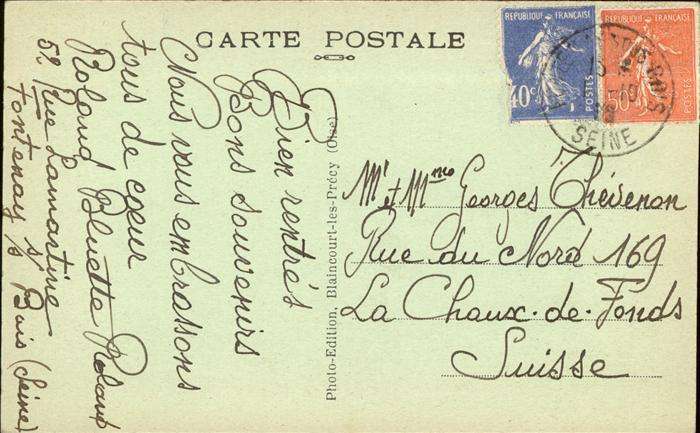 CARTE POSTALE
Bien rentrés
Bons souvenirs
Nous vous embrassons
tous de cœur
Roland Bluette Roland
52 Rue Lamartine
Fontenay s/s Bois (Seine)
Photo-Edition, Blaincourt-les-Précy (Oise)
Mr et Mme Georges Thévenon
Rue du Nord 169
La Chaux-de-Fonds
Suisse
REPUBLIQUE FRANÇAISE
40c
POSTES
REPUBLIQUE FRANÇAISE
50c
SEINE